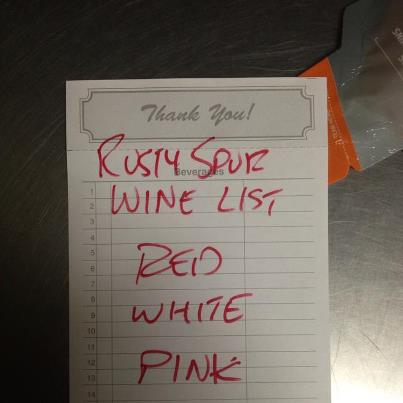 Thank You!
RUSTY SPUR
Beverages
1
2 WINE LIST
3
4
5
6 RED
7
8
9 WHITE
10
11
12 PINK
13
14